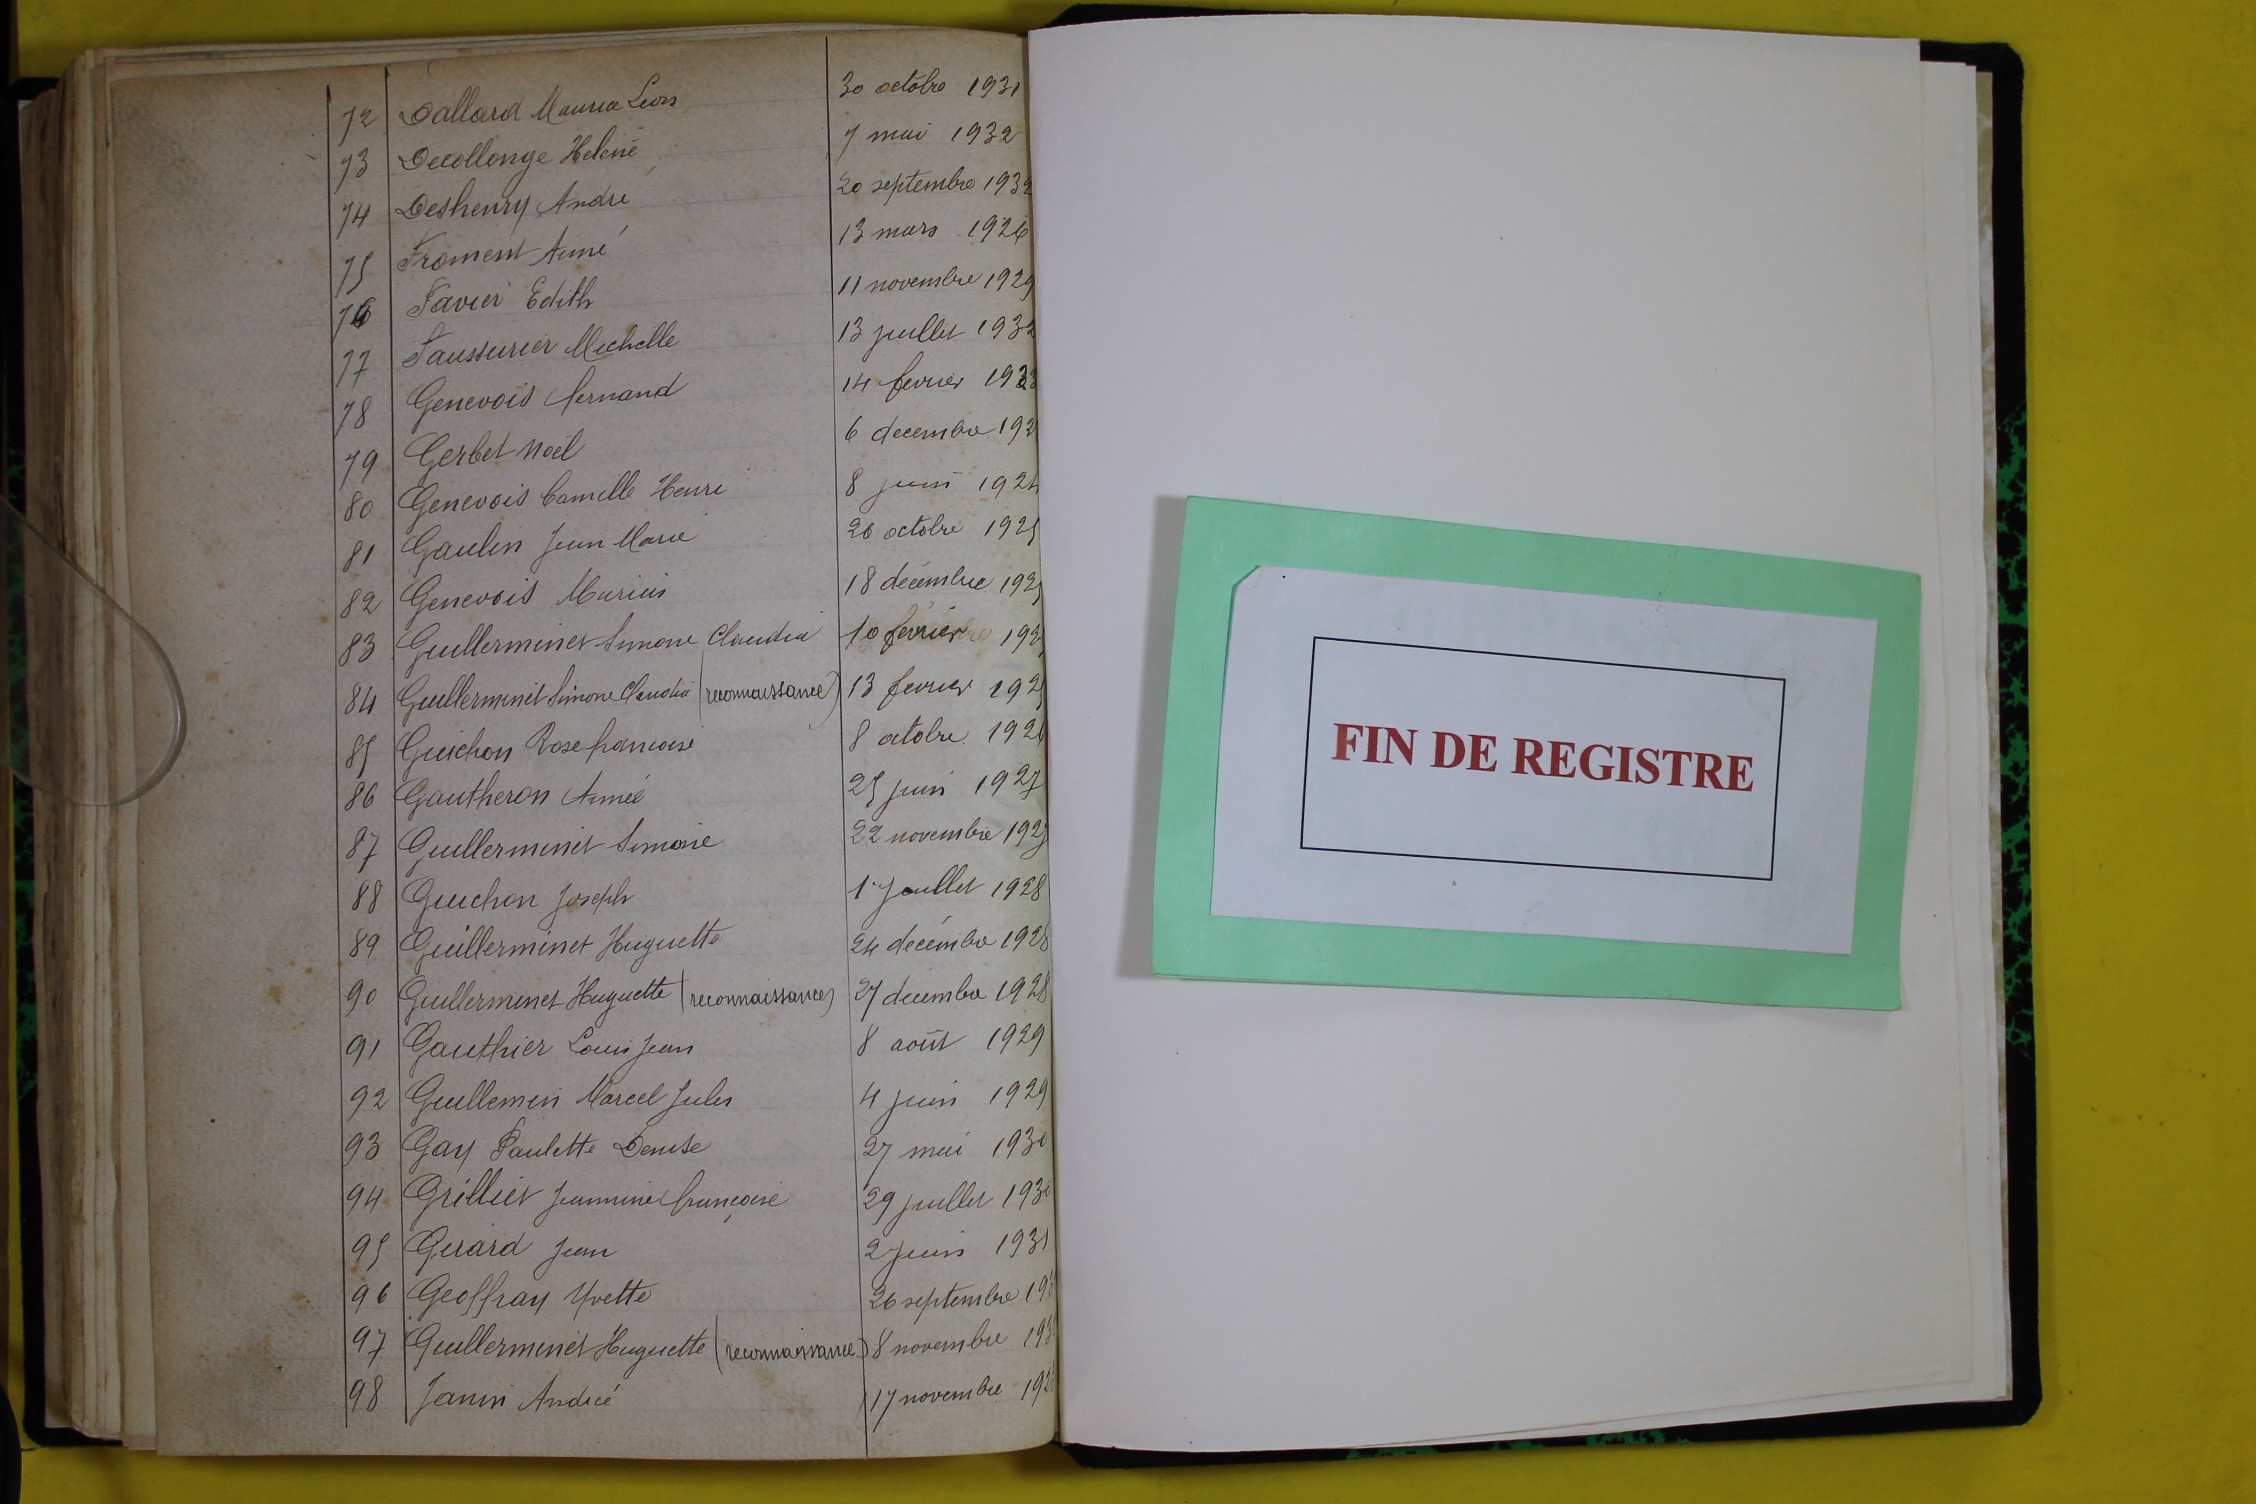 72 Dallard Maurice Léon 30 octobre 1931
73 Decollonge Helène 7 mai 1932
74 Deshenry André 20 septembre 1932
75 Froment Aimé 13 mars 1926
76 Favier Edith 11 novembre 1929
77 Faussurier Michelle 13 juillet 1932
78 Genevois Fernand 14 fevrier 1923
79 Gerbet Noël 6 decembre 192
80 Genevois Camille Henri 8 juin 1924
81 Gaulin Jean Marie 26 octobre 1925
82 Genevois Marius 18 décembre 1925
83 Guillerminet Simone Claudia 10 février 192
84 Guillerminet Simone Claudia (reconnaissance) 13 fevrier 192
85 Guichon Rose françoise 8 octobre 1926
86 Gautheron Aimée 25 juin 1927
87 Guillerminet Simone 22 novembre 1927
88 Guichon Joseph 1er Juillet 1928
89 Guillerminet Huguette 24 décembre 1928
90 Guillerminet Huguette (reconnaissance) 27 decembre 1928
91 Gauthier Louis Jean 8 août 1929
92 Guillemin Marcel Jules 4 juin 1929
93 Gay Paulette Denise 27 mai 1930
94 Grilliet Jeannine françoise 29 juillet 1930
95 Gerard Jean 2 Juin 1931
96 Geoffray Yvette 26 septembre 193
97 Guillerminet Huguette (reconnaissance) 8 novembre 193
98 Janin André 17 novembre 192
FIN DE REGISTRE